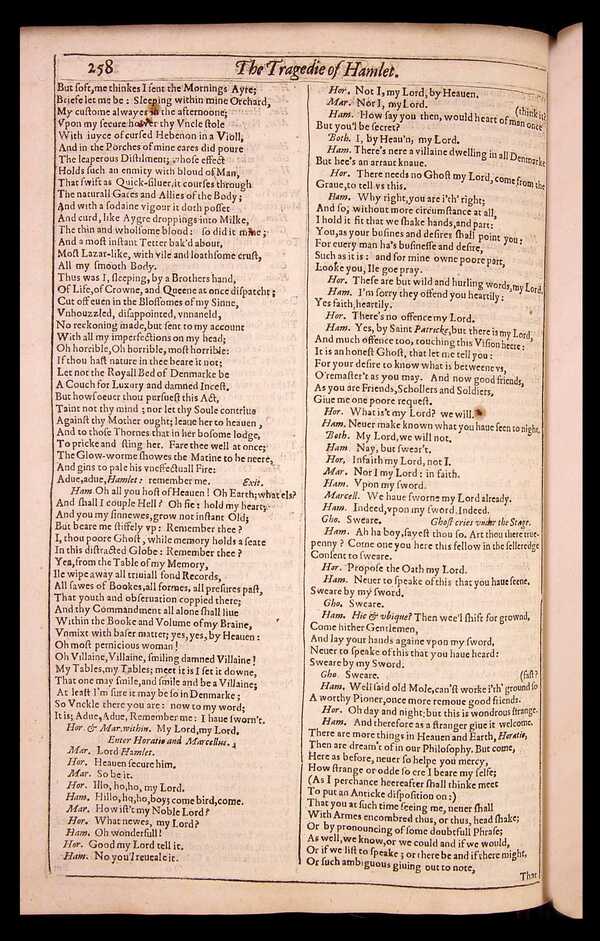 258
The Tragedie of Hamlet.
But soft, me thinkes I sent the Mornings Ayre;
Briefe let me be: Sleeping within mine Orchard,
My custome alwayes in the afternoone;
Vpon my secure hower thy Vncle stole
With iuyce of cursed Hebenon in a Violl,
And in the Porches of mine eares did poure
The leaperous Distilment; whose effect
Holds such an enmity with bloud of Man,
That swift as Quick-siluer, it courses through
The naturall Gates and Allies of the Body;
And with a sodaine vigour it doth posset
And curd, like Aygre droppings into Milke,
The thin and wholsome blood: so did it mine;
And a most instant Tetter bak'd about,
Most Lazar-like, with vile and loathsome crust,
All my smooth Body.
Thus was I, sleeping, by a Brothers hand,
Of Life, of Crowne, and Queene at once dispatcht;
Cut off euen in the Blossomes of my Sinne,
Vnhouzzled, disappointed, vnnaneld,
No reckoning made, but sent to my account
With all my imperfections on my head;
Oh horrible, Oh horrible, most horrible:
If thou hast nature in thee beare it not;
Let not the Royall Bed of Denmarke be
A Couch for Luxury and damned Incest.
But howsoeuer thou pursuest this Act,
Taint not thy mind; nor let thy Soule contriue
Against thy Mother ought; leaue her to heauen,
And to those Thornes that in her bosome lodge,
To pricke and sting her. Fare thee well at once;
The Glow-worme showes the Matine to be neere,
And gins to pale his vneffectuall Fire:
Adue, adue, Hamlet: remember me. Exit.
Ham Oh all you host of Heauen! Oh Earth; what els?
And shall I couple Hell? Oh fie: hold my heart;
And you my sinnewes, grow not instant Old;
But beare me stiffely vp: Remember thee?
I, thou poore Ghost, while memory holds a seate
In this distracted Globe: Remember thee?
Yea, from the Table of my Memory,
Ile wipe away all triuiall fond Records,
All sawes of Bookes, all formes, all presures past,
That youth and obseruation coppied there;
And thy Commandment all alone shall liue
Within the Booke and Volume of my Braine,
Vnmixt with baser matter; yes, yes, by Heauen:
Oh most pernicious woman!
Oh Villaine, Villaine, smiling damned Villaine!
My Tables, my Tables; meet it is I set it downe,
That one may smile, and smile and be a Villaine;
At least I'm sure it may be so in Denmarke;
So Vnckle there you are: now to my word;
It is; Adue, Adue, Remember me: I haue sworn't.
Hor & Mar. within. My Lord, my Lord.
Enter Horatio and Marcellus.
Mar. Lord Hamlet.
Hor. Heauen secure him.
Mar. So be it.
Hor. Illo, ho, ho, my Lord.
Ham. Hillo, ho, ho, boy; come bird, come.
Mar. How ist't my Noble Lord?
Hor. What newes, my Lord?
Ham. Oh wonderfull!
Hor. Good my Lord tell it.
Ham. No you'l reueale it.
Hor. Not I, my Lord, by Heauen.
Mar. Nor I, my Lord.
(think it?
Ham. How say you then, would heart of man once
But you'l be secret?
Both. I, by Heau'n, my Lord.
Ham. There's nere a villaine dwelling in all Denmarke
But hee's an arraut knaue.
Hor. There needs no Ghost my Lord, come from the
Graue, to tell vs this.
Ham. Why right, you are i'th' right;
And so, without more circumstance at all,
I hold it fit that we shake hands, and part:
You, as your busines and desires shall point you:
For euery man ha's businesse and desire,
Such as it is: and for mine owne poore part,
Looke you, Ile goe pray.
Hor. These are but wild and hurling words, my Lord.
Ham. I'm sorry they offend you heartily:
Yes faith, heartily.
Hor. There's no offence my Lord.
Ham. Yes, by Saint Patricke, but there is my Lord,
And much offence too, touching this Vision heere:
It is an honest Ghost, that let me tell you:
For your desire to know what is betweene vs,
O'remaster't as you may. And now good friends,
As you are Friends, Schollers and Soldiers,
Giue me one poore request.
Hor. What is't my Lord? we will.
Ham. Neuer make known what you haue seen to night.
Both. My Lord, we will not.
Ham Nay, but swear't.
Hor, Infaith my Lord, not I.
Mar. Nor I my Lord: in faith.
Ham. Vpon my sword.
Marcell. We haue sworne my Lord already.
Ham. Indeed, vpon my sword, Indeed.
Gho. Sweare. Ghost cries vnder the Stage.
Ham. Ah ha boy, sayest thou so. Art thou there true-
penny? Come one you here this fellow in the selleredge
Consent to sweare.
Hor. Propose the Oath my Lord.
Ham. Neuer to speake of this that you haue seene.
Sweare by my sword.
Gho. Sweare.
Ham. Hic & vbique? Then wee'l shift for grownd,
Come hither Gentlemen,
And lay your hands againe vpon my sword,
Neuer to speake of this that you haue heard:
Sweare by my Sword.
Gho. Sweare. (fast?
Ham. Well said old Mole, can'st worke i'th' ground so
A worthy Pioner, once more remoue good friends.
Hor. Oh day and night; but this is wondrous strange.
Ham. And therefore as a stranger giue it welcome.
There are more things in Heauen and Earth, Horatio,
Then are dream't of in our Philosophy. But come,
Here as before, neuer so helpe you mercy,
How strange or odde so ere I beare my selfe;
(As I perchance heereafter shall thinke meet
To put an Anticke disposition on:)
That you at such time seeing me, neuer shall
With Armes encombred thus, or thus, head shake;
Or by pronouncing of some doubtfull Phrase;
As well, we know, or we could and if we would,
Or if we list to speake; or there be and if there might,
Or such ambiguous giuing out to note,
That